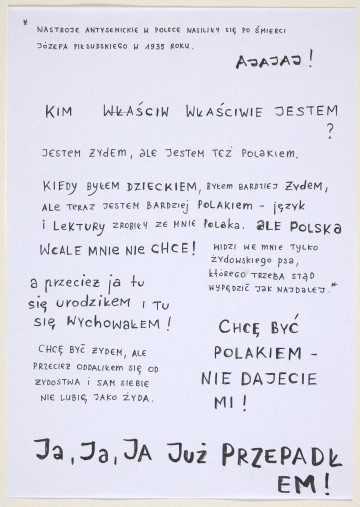 * NASTROJE ANTYSEMICKIE W POLSCE NASILIŁY SIĘ PO ŚMIERCI
JÓZEFA PIŁSUDSKIEGO W 1935 ROKU.
AJAJAJ!
KIM WŁAŚCIW WŁAŚCIWIE JESTEM
?
JESTEM ŻYDEM, ALE JESTEM TEŻ POLAKIEM.
KIEDY BYŁEM DZIECKIEM, BYŁEM BARDZIEJ ŻYDEM,
ALE TERAZ JESTEM BARDZIEJ POLAKIEM – JĘZYK
I LEKTURY ZROBIŁY ZE MNIE POLAKA. ALE POLSKA
WCALE MNIE NIE CHCE!
WIDZI WE MNIE TYLKO
ŻYDOWSKIEGO PSA,
KTÓREGO TRZEBA STĄD
WYPĘDZIĆ JAK NAJDALEJ.*
a przecież ja tu
się urodziłem i TU
się wychowałem!
CHCĘ BYĆ ŻYDEM, ALE
PRZECIEŻ ODDALIŁEM SIĘ OD
ŻYDOSTWA I SAM SIEBIE
NIE LUBIĘ JAKO ŻYDA.
CHCĘ BYĆ
POLAKIEM –
NIE DAJECIE
MI!
Ja, Ja, JA Już PRZEPADŁ
EM!